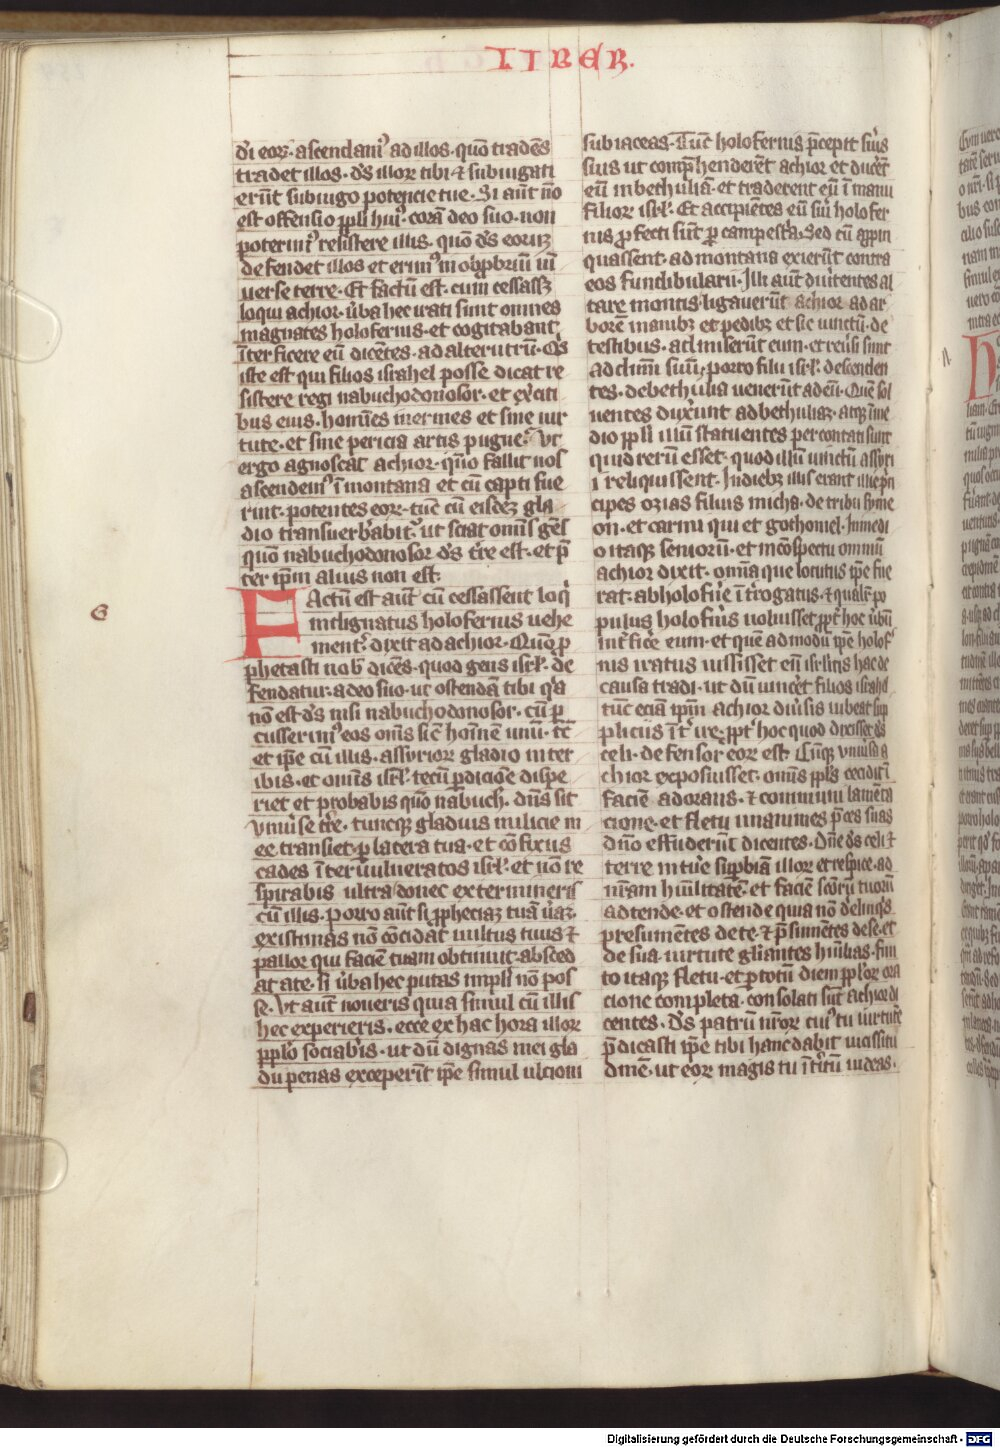 LIBER.
di eoꝝ · ascendamꝰ ad illos · qūo tradēs
tradet illos · d̄s illoꝝ tibi ⁊ subiugati
erūt sub iugo potencie tue · Si aūt nō
est offensio pp̄li huiꝰ corā deo suo · non
poterimꝰ resistere illis · quō d̄s eorum
defendet illos et erimꝰ in obp̄briū uni
uerse terre · Et factū est · cum cessassꝫ
loqui achior · ūba hec irati sunt omnes
magnates holofernis · et cogitabant
īterficere eū dicētes · ad alterutrū · Qis
iste est qui filios israhel posse dicat re
sistere regi nabuchodonosor · et ex̄citi
bus eius · homīes inermes et sine uir
tute · et sine pericia artis pugne · Vt
ergo agnoscat achior · qūo fallit nos
ascendemꝰ ī montana et cū capti fue
rint · potentes eoꝝ · tūc cū eisdeꝫ gla
dio transuerb̄abitᷣ · ut sciat om̄is gēs
quō nabuchodonosor d̄s tr̄e est · et p̄
ter ip̄m alius non est ·
Factū est aūt cū cessassent loqi
indignatus holofernis uehe
mentᷣ · dixit ad achior · Quō p
phetasti nob̄ dicēs · quod gens isrl̄ · de
fendatur · a deo suo · ut ostendā tibi qia
nō est d̄s nisi nabuchodonosor · cū ꝑ
cusserimꝰ eos om̄s sic̄ hoīnem unū · tc̄
et ip̄e cū illis · assyrioꝝ gladio intet
ibis · et om̄is isrl̄ · tecū ꝑdicōne dispe
riet et probabis quō nabuch · dn̄s sit
vniūse tr̄e · tuncqꝫ gladius milicie m
ee transiet · ꝑ latera tua · et cōfixus
cades īter uulneratos isrl̄ · et nō re
spirabis ultra donec extermineris
cū illis · porro aūt si ꝓpheciaꝫ tuā ūaꝫ ·
existimas nō cōcidāt uultus tuus ⁊
pallor qui faciē tuam obtinuit · absced
at a te · si ūba hec putas impli nō pos
se · Vt aūt noueris quia simul cū illis
hec experieris · ecce ex hac hora illoꝝ
pp̄lo sociab̄is · ut dū dignas mei gla
dii penas exceperīt ip̄e simul ulcioni
subiaceas · Tūc holofernis p̄cepit s̄uis
suis ut comp̄henderēt achior et ducēt
eū in bethuliā · et traderent eū ī manu
filioꝝ isrl̄ · Et accipiētes eū s̄ui holofer
nis ꝓfecti sūt ꝑ campestͣa · Sed cū appin
quassent · ad montana exierūt contra
eos fundibularii · Illi aūt diūtentes a l
tare montis · ligauerūt achior ad ar
borē manibꝫ et pedibꝫ et sic uinctū · de
restibus · admiserūt eum · et reūsi sunt
ad dn̄m suū · porro filii isrl̄ · descenden
tes · de bethulia uenerūt ad eū · Quē sol
uentes duxunt ad bethuliaꝫ · atqꝫ ī me
dio pp̄li illū statuentes percontati sunt
quid rerū esset · quod illū uinctū assyri
i reliquissent · In diebꝫ illis erant illic p̄n
cipes ozias filius micha · de tribu syme
on · et carmi qui et gothoniel · In medi
o itaqꝫ senioꝝ · et in cōspectu omniū
achior dixit · omīa que locutus ip̄e fue
rat · ab holof̄ne īt̄rogatus · ⁊ qualit̄ po
pulus holof̄nis uoluisset ꝓpt̄ hoc ūbū
int̄fic̄e eum · et quē ad modū ip̄e holof̄
nis iratus iussisset eū isrl̄itis hac de
causa tradi · ut dū uinc̄et filios israhl̄
tūc eciā ip̄m achior diūsis iubeat sup
pliciis īt̄ire · ꝓpt̄ hoc quod dixisset d̄s
celi · defensor eoꝝ est · Cūqꝫ vniūsa a
chior exposuisset · om̄is pp̄ls cecidit ī
faciē adorans · ⁊ communi lamēta
cione · et fletu unanimes p̄ces suas
dn̄o effuderūt dicentes · Dn̄e d̄s celi ⁊
terre intue sup̄biā illoꝝ et respice · ad
nr̄am hūilitatē · et faciē sc̄oꝝ tuoꝝ
adtende · et ostende quia nō delinqis
presumētes de te · ⁊ p̄sumētes de se · et
de sua uirtute gl̄iantes hūilias · fini
to itaqꝫ fletu · et ꝑ totū diem pp̄loꝝ ora
cione completa · consolati sūt achior di
centes · D̄s patrū nr̄oꝝ cuiꝰ tu uirtutē
p̄dicasti ip̄e tibi hanc dabit uicissitu
dinē · ut eoꝝ magis tu īt̄itū uideas ·
Digitalisierung gefördert durch die Deutsche Forschungsgemeinschaft - DFG